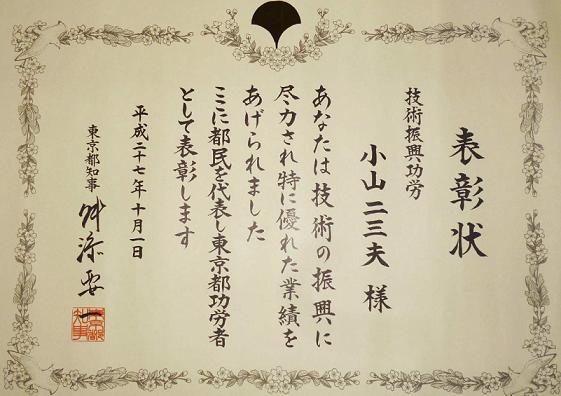 表彰状
技術振興功労
小山二三夫様
あなたは技術の振興に
尽力され特に優れた業績を
あげられました
ここに都民を代表し東京都功労者
として表彰します
平成二十七年十月一日
東京都知事 舛添要一
東京都知事